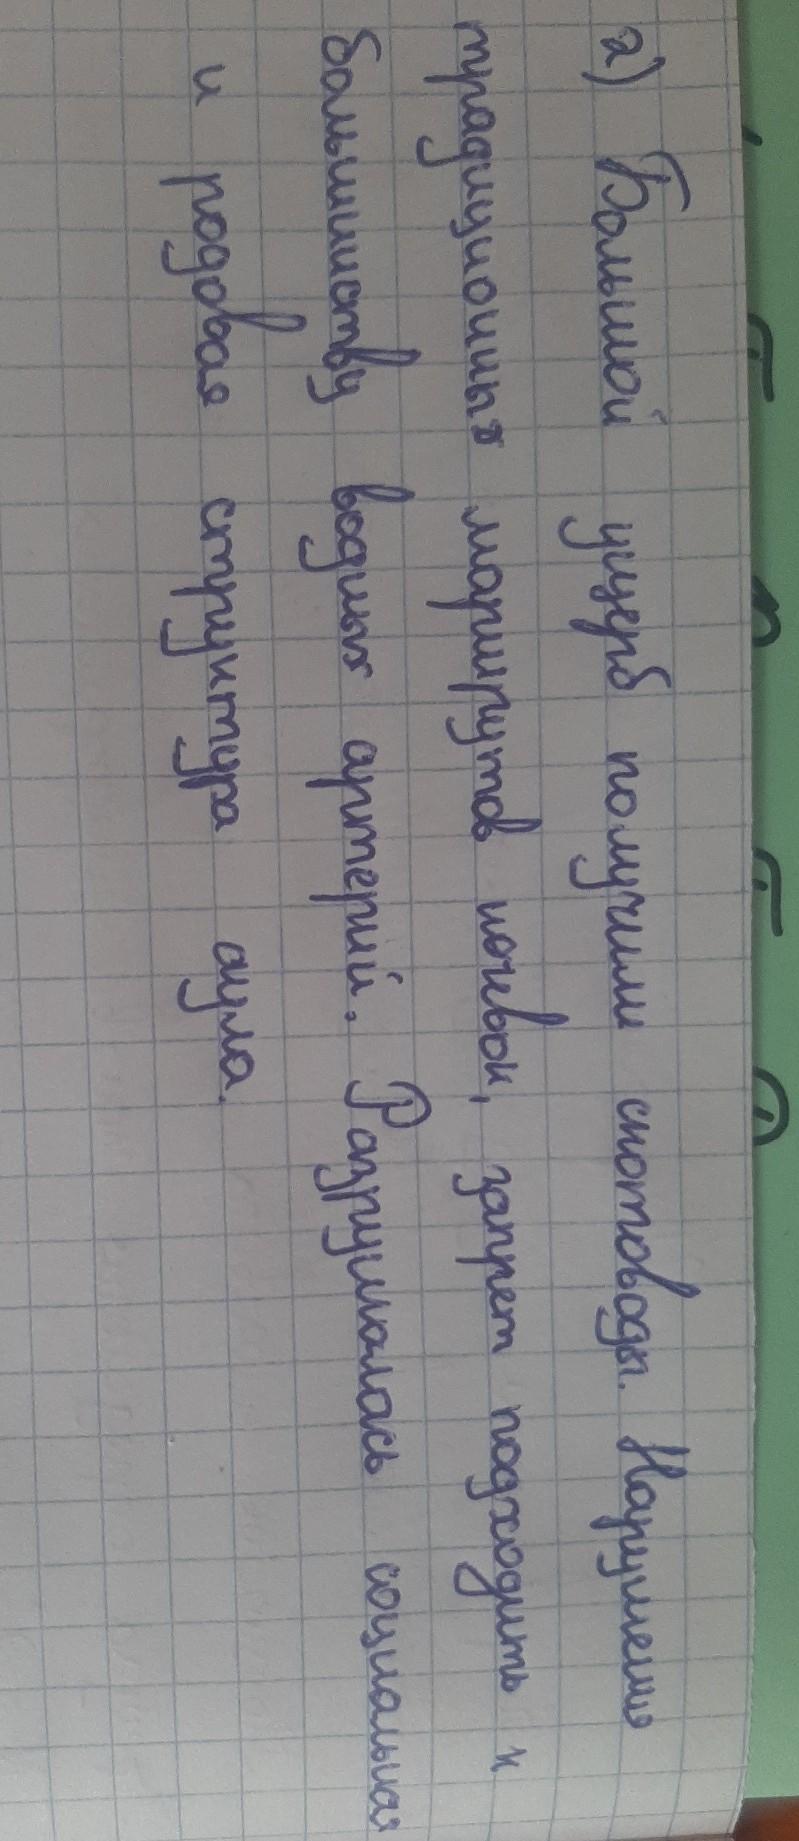 г) Большой ущерб получили скотоводы. Нарушения
традиционных маршрутов кочевок, запрет подходить к
большинству водных артерий. Разрушалась социальная
и родовая структура аула.